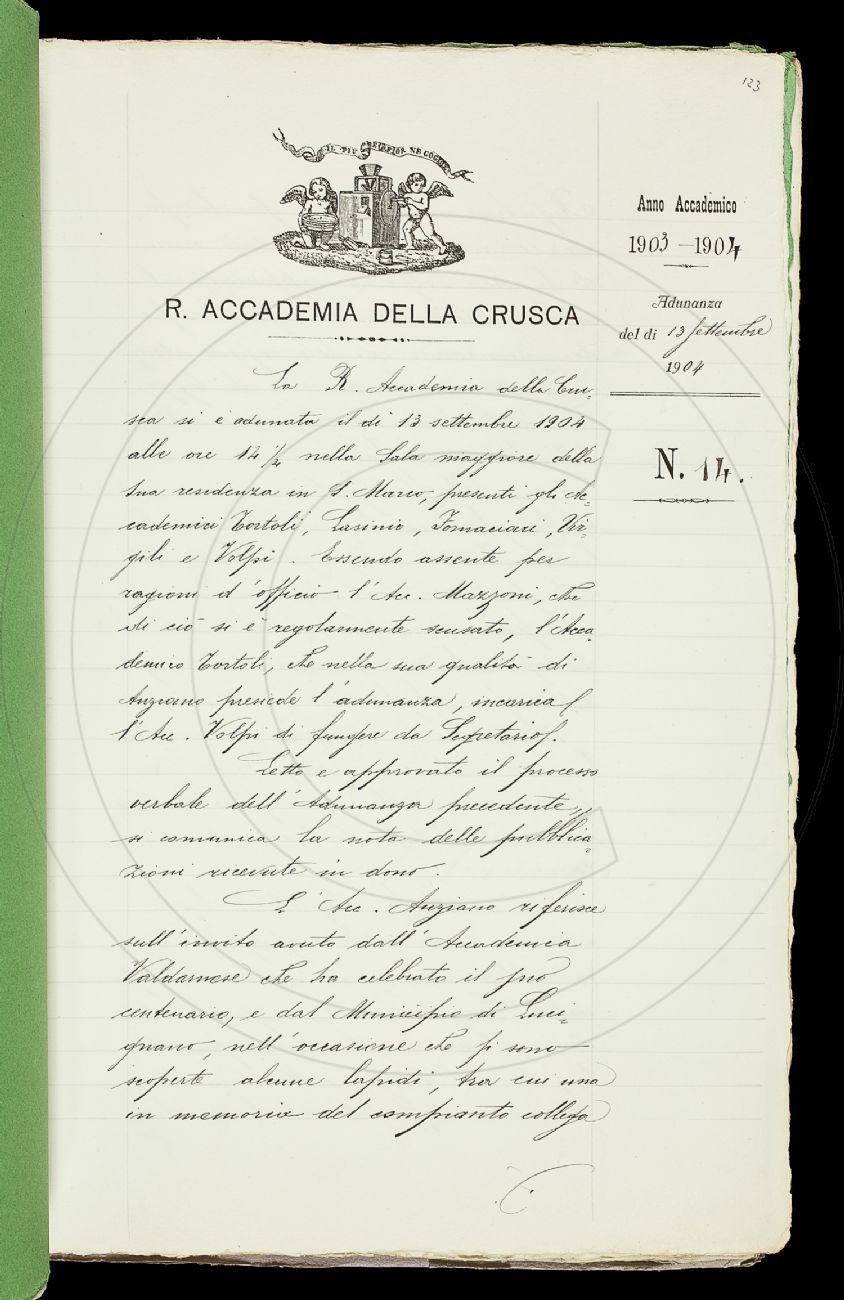 123
IL PIÙ BEL FIOR NE COGLIE
R. ACCADEMIA DELLA CRUSCA
Anno Accademico
1903-1904
Adunanza
del dì 13 Settembre
1904
N. 14.
La R. Accademia della Cru-
sca si è adunata il dì 13 settembre 1904
alle ore 12 1/2 nella Sala maggiore della
Sua residenza in S. Marco, presenti gli Ac-
cademici Tortoli, Lasinio, Fornaciari, Vir-
gili e Volpi. Essendo assente per
ragioni d'officio l'Acc. Mazzoni, che
di ciò si è regolarmente scusato, l'Acca-
demico Tortoli, che nella sua qualità di
Anziano presiede l'adunanza, incarica
l'Acc. Volpi di fungere da Segretario.
Letto e approvato il processo
verbale dell'Adunanza precedente,
si comunica la nota delle pubblica-
zioni ricevute in dono.
L'Acc. Anziano riferisce
sull'invito avuto dall'Accademia
Valdarnese che ha celebrato il suo
centenario, e dal Municipio di Luci-
gnano, nell'occasione che si sono
scoperte alcune lapidi, tra cui una
in memoria del compianto collega